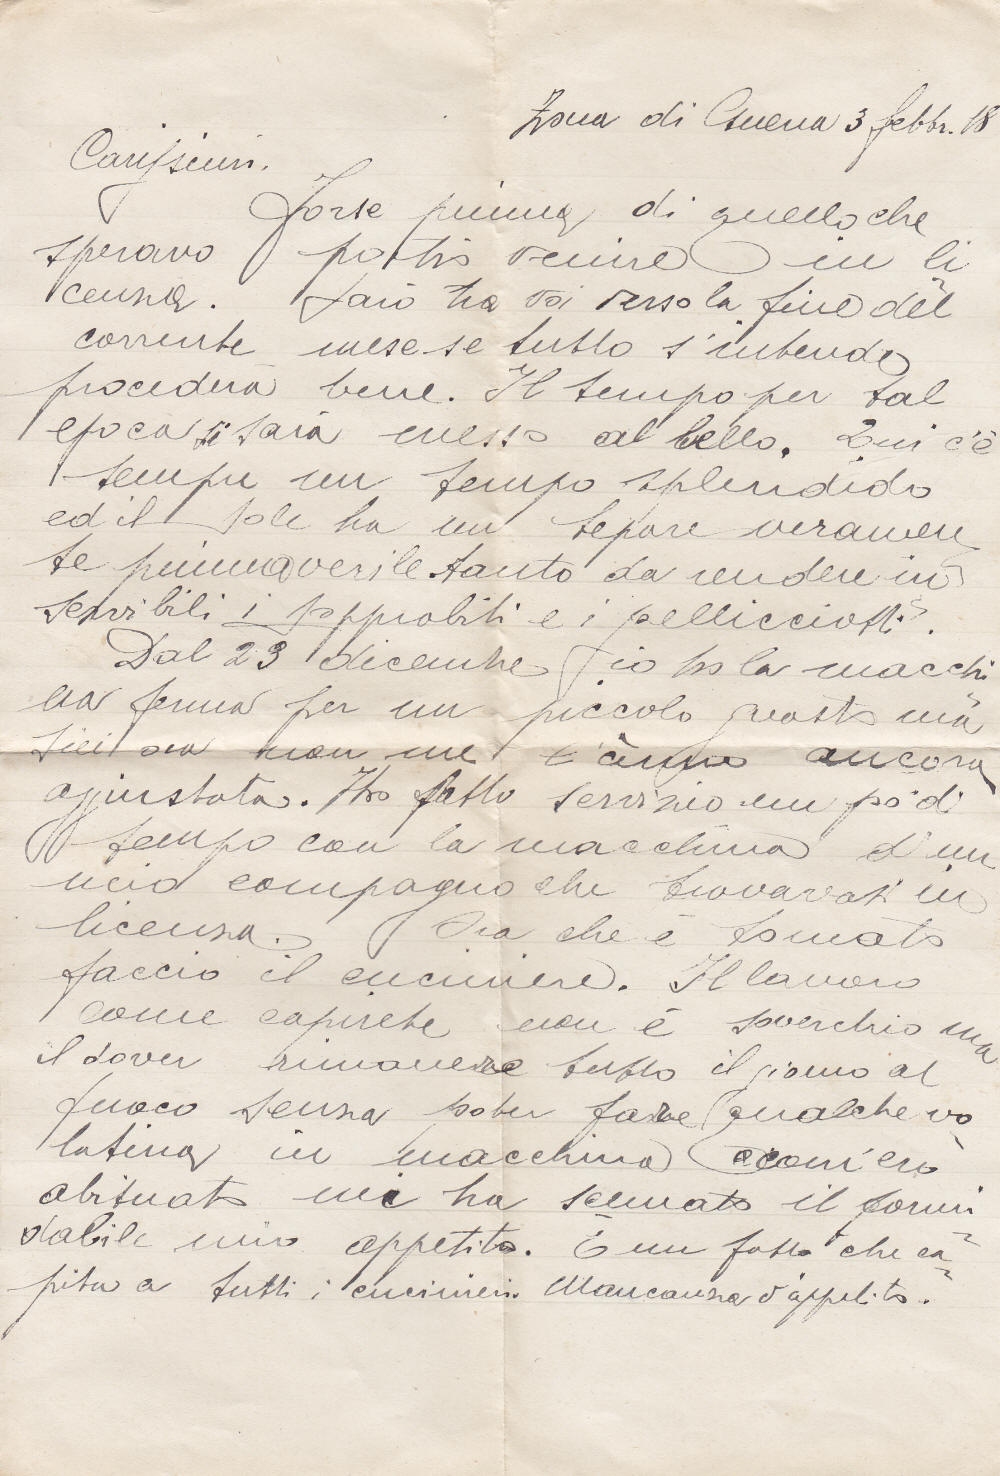 Zona di Guerra 3 febbr. 18
Carissimi.
Forse prima di quello che
speravo potrò venire in li
cenza. Sarò tra voi verso la fine del
corrente mese se tutto s'intende
procederà bene. Il tempo per tal
epoca si sarà messo al bello. Qui c'è
sempre un tempo splendido
ed il sole ha un tepore veramen
te primaverile tanto da rendere in
servibili i soprabiti e i pellicciotti.
Dal 23 dicembre io ho la macchi
na ferma per un piccolo guasto ma
sin ora non me l'ànno ancora
aggiustata. Ho fatto servizio un po' di
tempo con la macchina d'un
mio compagno che trovavasi in
licenza. Ora che è tornato
faccio il cuciniere. Il lavoro
come capirete non è soverchio ma
il dover rimanere tutto il giorno al
fuoco senza poter fare qualche vo
latina in macchina com'ero
abituato mi ha scemato il formi
dabile mio appetito. È un fatto che ca
pita a tutti i cucinieri. Mancanza d'appetito.